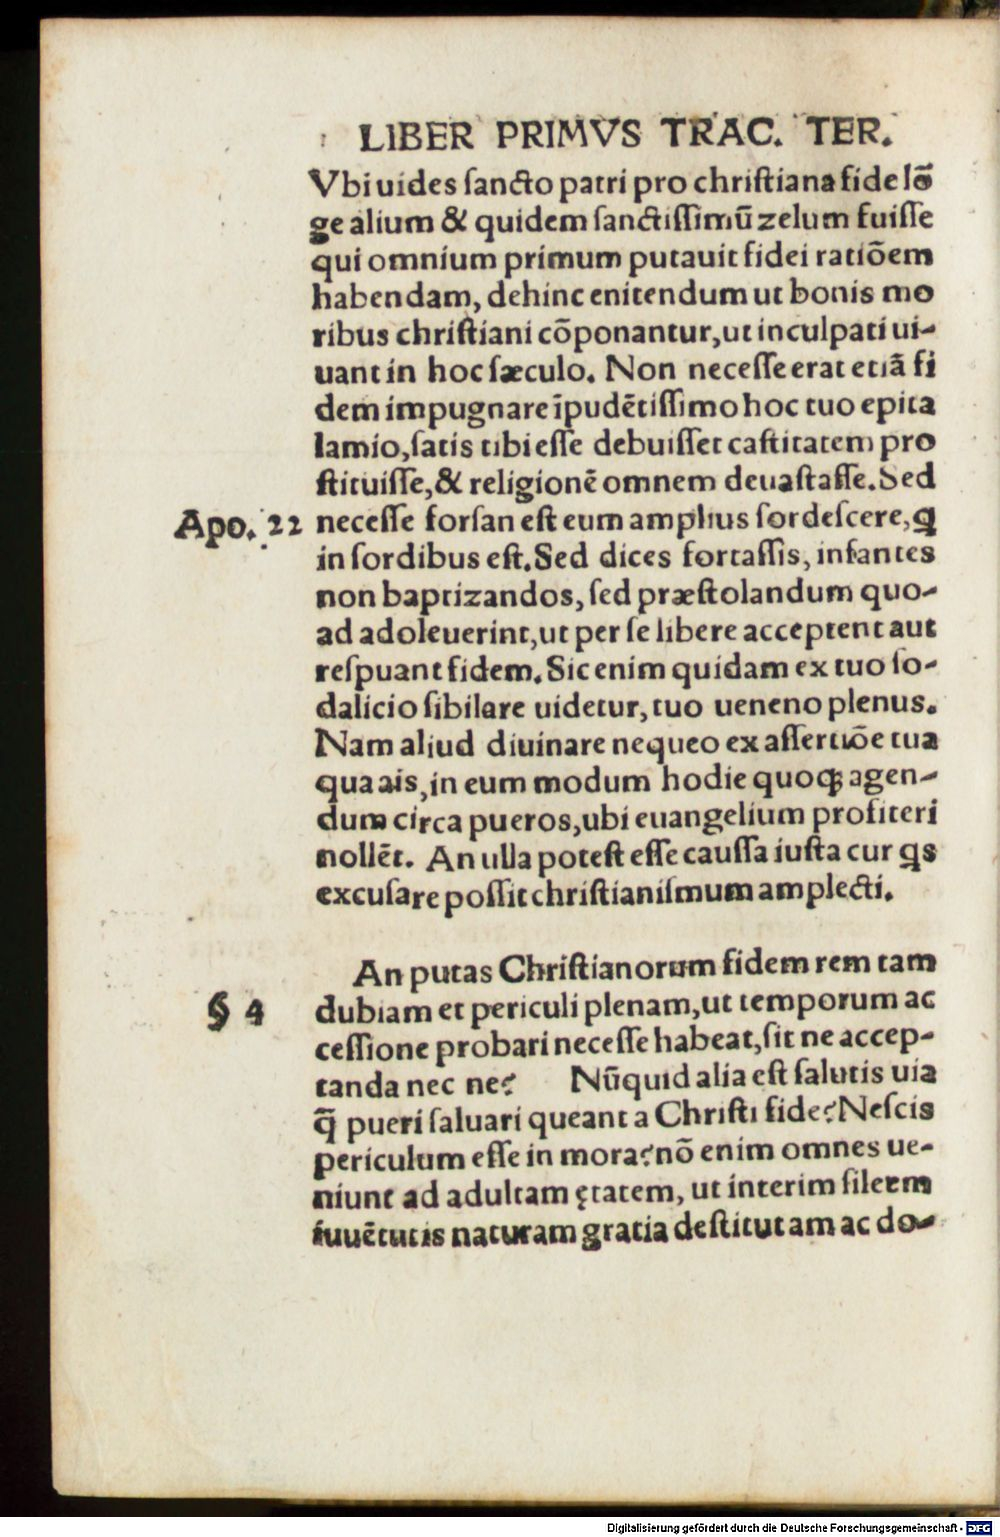 LIBER PRIMVS TRAC. TER.
Vbi uides ſancto patri pro chriſtiana fide lõ
ge alium & quidem ſanctiſſimũ zelum fuiſſe
qui omnium primum putauit fidei ratiõem
habendam, dehinc enitendum ut bonis mo
ribus chriſtiani cõponantur, ut inculpati ui-
uant in hoc ſæculo. Non neceſſe erat etiã fi
dem impugnare ĩpudẽtiſſimo hoc tuo epita
lamio, ſatis tibi eſſe debuiſſet caſtitatem pro
ſtituiſſe, & religionẽ omnem deuaſtaſſe. Sed
Apo. 22 neceſſe forſan eſt eum amplius ſordeſcere, ꝗ
in ſordibus eſt. Sed dices fortaſſis, infantes
non baptizandos, ſed præſtolandum quo-
ad adoleuerint, ut per ſe libere acceptent aut
reſpuant fidem. Sic enim quidam ex tuo ſo-
dalicio ſibilare uidetur, tuo ueneno plenus.
Nam aliud diuinare nequeo ex aſſertiõe tua
qua ais, in eum modum hodie quoqꝫ agen-
dum circa pueros, ubi euangelium profiteri
nollẽt. An ulla poteſt eſſe cauſſa iuſta cur ꝗs
excuſare poſſit chriſtianiſmum amplecti.
An putas Chriſtianorum fidem rem tam
§ 4 dubiam et periculi plenam, ut temporum ac
ceſſione probari neceſſe habeat, ſit ne accep-
tanda nec ne? Nũquid alia eſt ſalutis uia
q̃ pueri ſaluari queant a Chriſti fide? Neſcis
periculum eſſe in mora? nõ enim omnes ue-
niunt ad adultam ętatem, ut interim ſileam
iuuẽtutis naturam gratia deſtitutam ac do-
Digitalisierung gefördert durch die Deutsche Forschungsgemeinschaft - DFG